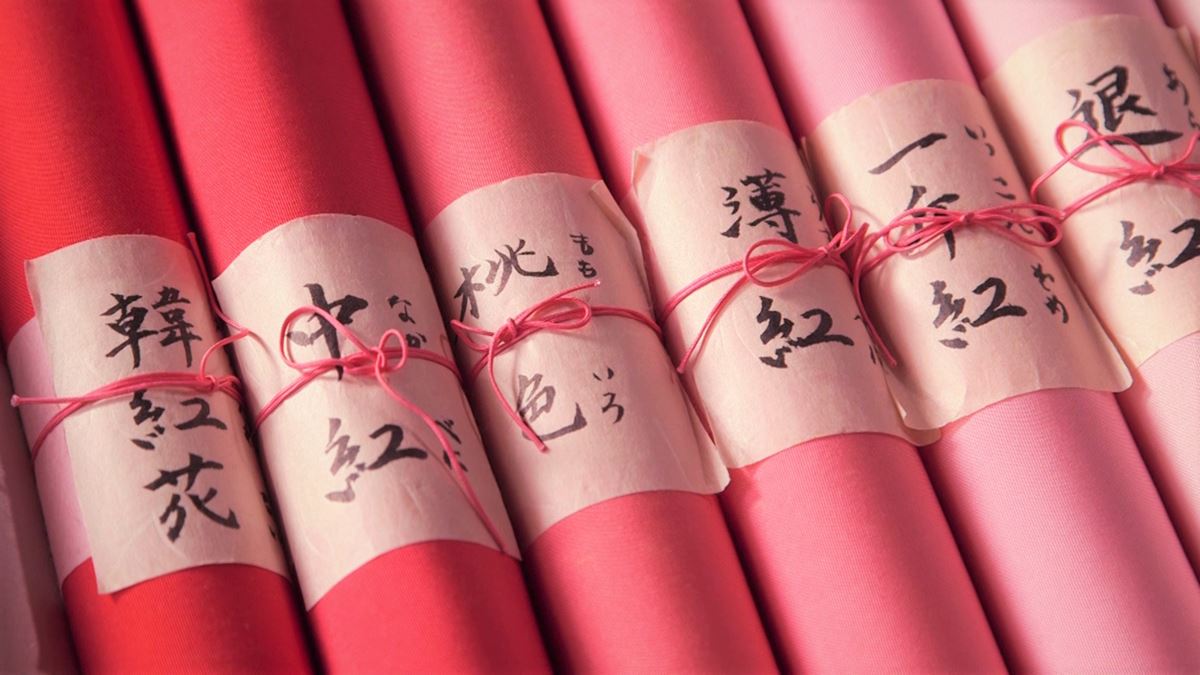 韓紅花
中紅
なかべに
桃色
ももいろ
薄紅
一斤紅
いっこ
ぞめ
退紅
あ